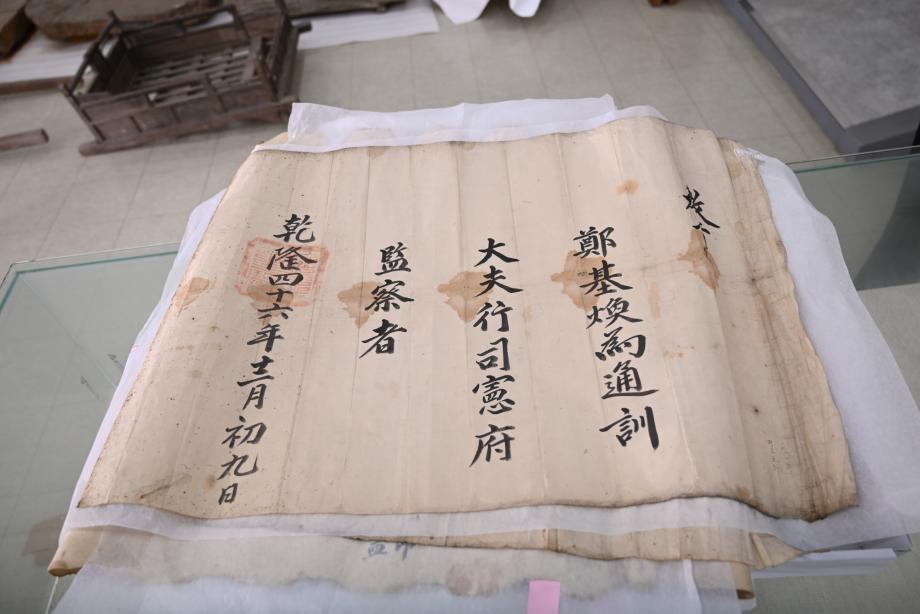 敎旨
鄭基煥為通訓
大夫行司憲府
監察者
乾隆四十六年十二月初九日